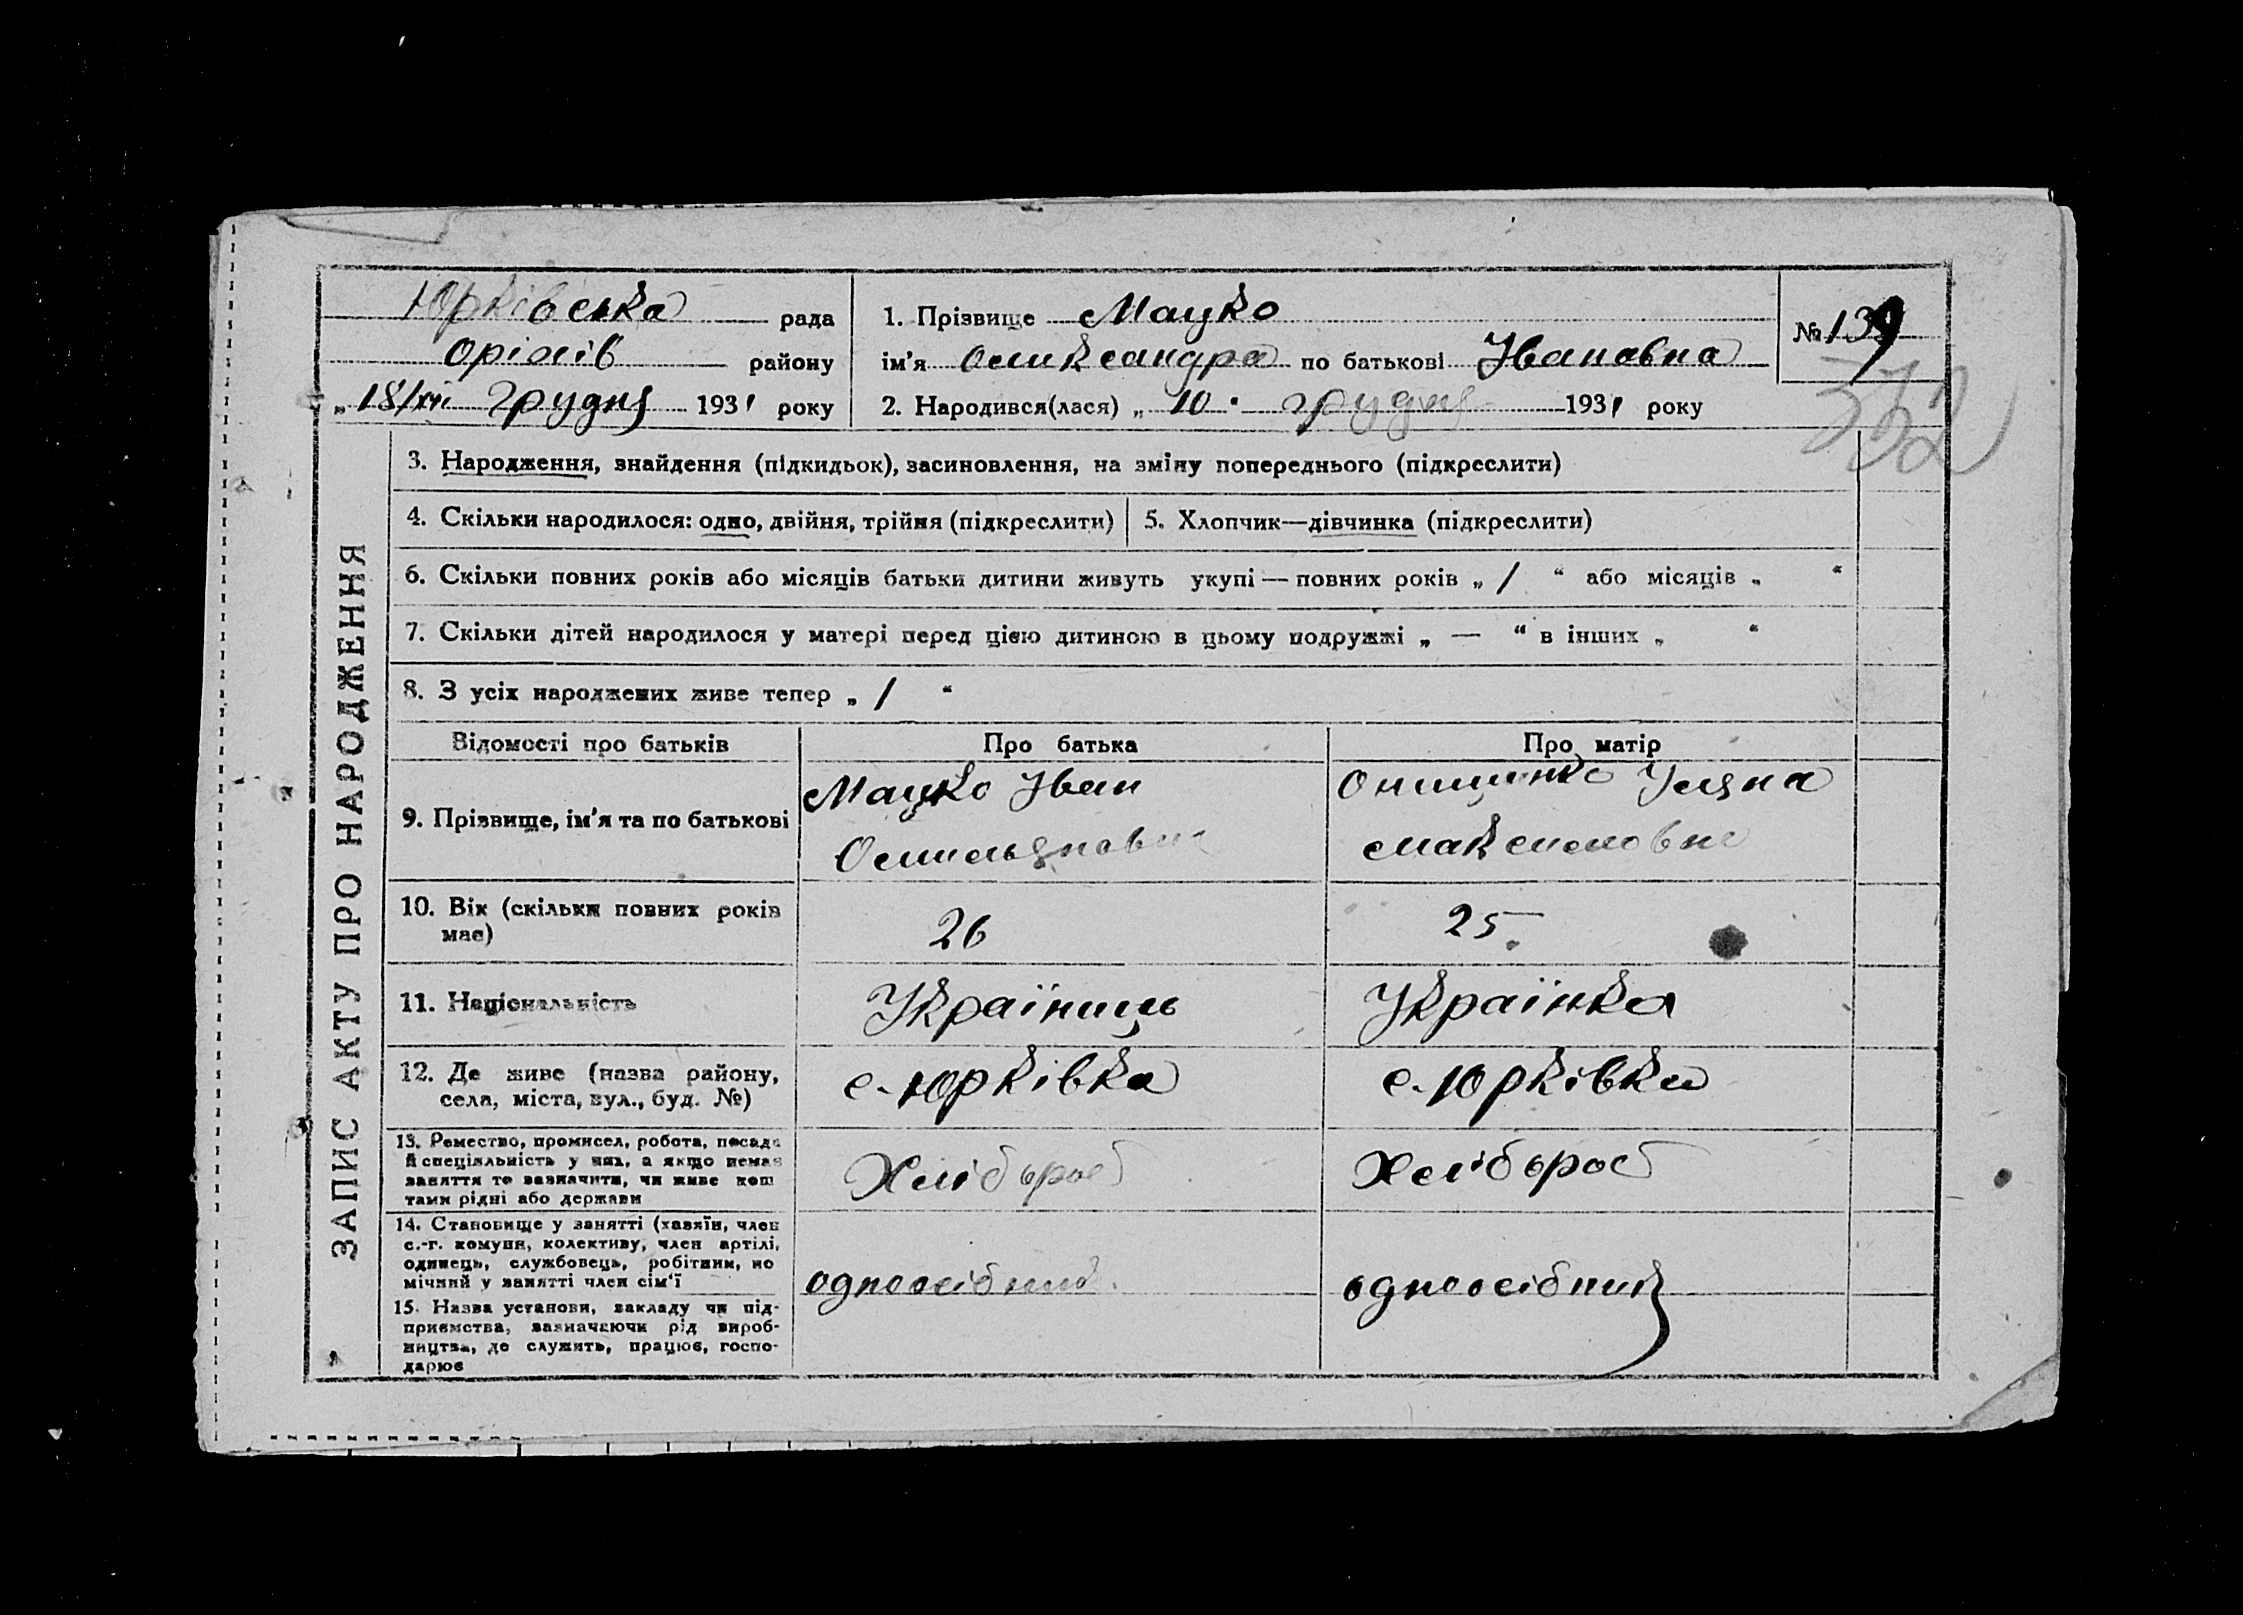 Юрківська рада
Оріхів району
„ 18/XII Грудня 1931 року
1. Прізвище Мацко
ім'я Оликсандра по батькові Івановна
2. Народився(лася) „ 10 " грудня 1931 року
№ 139
332
ЗАПИС АКТУ ПРО НАРОДЖЕННЯ
3. Народження, знайдення (підкидьок), засиновлення, на зміну попереднього (підкреслити)
4. Скільки народилося: одно, двійня, трійня (підкреслити)
5. Хлопчик—дівчинка (підкреслити)
6. Скільки повних років або місяців батьки дитини живуть укупі — повних років „ 1 “ або місяців „ “
7. Скільки дітей народилося у матері перед цією дитиною в цьому подружжі „ — “ в інших „ “
8. З усіх народжених живе тепер „ 1 “
Відомості про батьків
Про батька
Про матір
9. Прізвище, ім'я та по батькові
Мацко Іван
Онищенко Уляна
Максимовна
10. Вік (скільки повних років
має)
26
25
11. Національність
Українць
Українка
12. Де живе (назва району,
села, міста, вул., буд. №)
с. Юрківка
с. Юрківка
13. Ремество, промисел, робота, посада
й спеціяльність у них, а якщо немає
заняття то зазначити, чи живе кош
тами рідні або держави
Хлібороб
Хлібороб
14. Становище у занятті (хазяїн, член
с.-г. комуни, колективу, член артілі,
одинець, службовець, робітник, по
мічний у занятті член сім'ї
одноосібник
одноосібник
15. Назва установи, закладу чи під-
приємства, зазначаючи рід вироб-
ництва, де служить, працює, госпо-
дарює